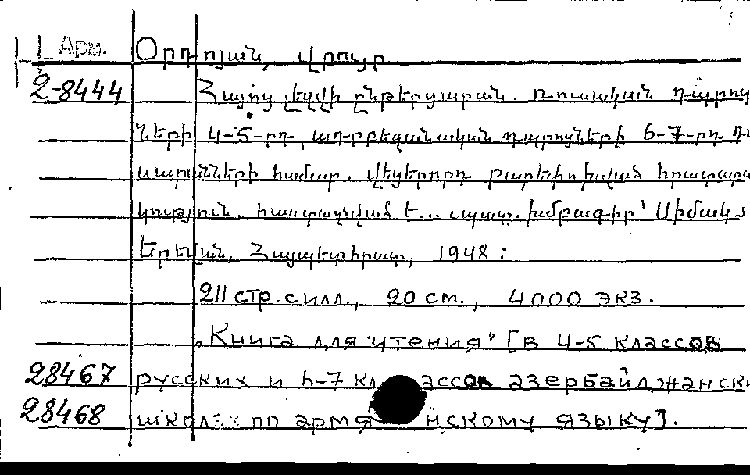 Арм. Օրդոյան, Վրույր
2-8444 Հայոց լեզվի ընթերցարան. ռուսական դպրոց
ների 4-5-րդ, ադրբեջանական դպրոցների 6-7-րդ դա
սարանների համար. Վեցերորդ բարեփոխված հրատարա
կություն. հաստատված է... պատ. խմբագիր՝
Երևան, Հայպետհրատ, 1948:
211 стр. с илл., 20 см., 4000 экз.
„Книга для чтения" [в 4-5 классов
28467 русских и 6-7 классов азербайджански
28468 школах по армянскому языку].